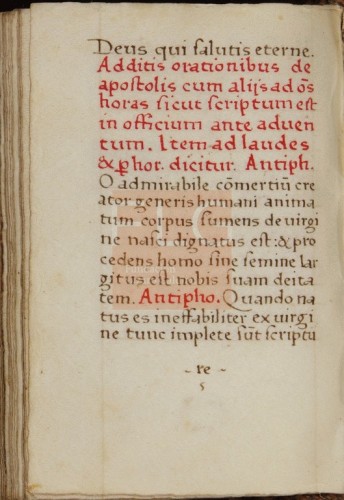 Deus qui salutis eterne.
Additis orationibus de
apostolis cum alijs ad oꝰs
horas sicut scriptum est
in officium ante aduen
tum. Item ad laudes
& ꝑ hor. dicitur. Antiph.
O admirabile cõmertiũ cre
ator generis humani anima
tum corpus sumens de uirgi
ne nasci dignatus est: & pro
cedens homo sine semine lar
gitus est nobis suam deita
tem. Antipho. Quando na
tus es ineffabiliter ex uirgi
ne tunc implete sũt scriptu
- re
5